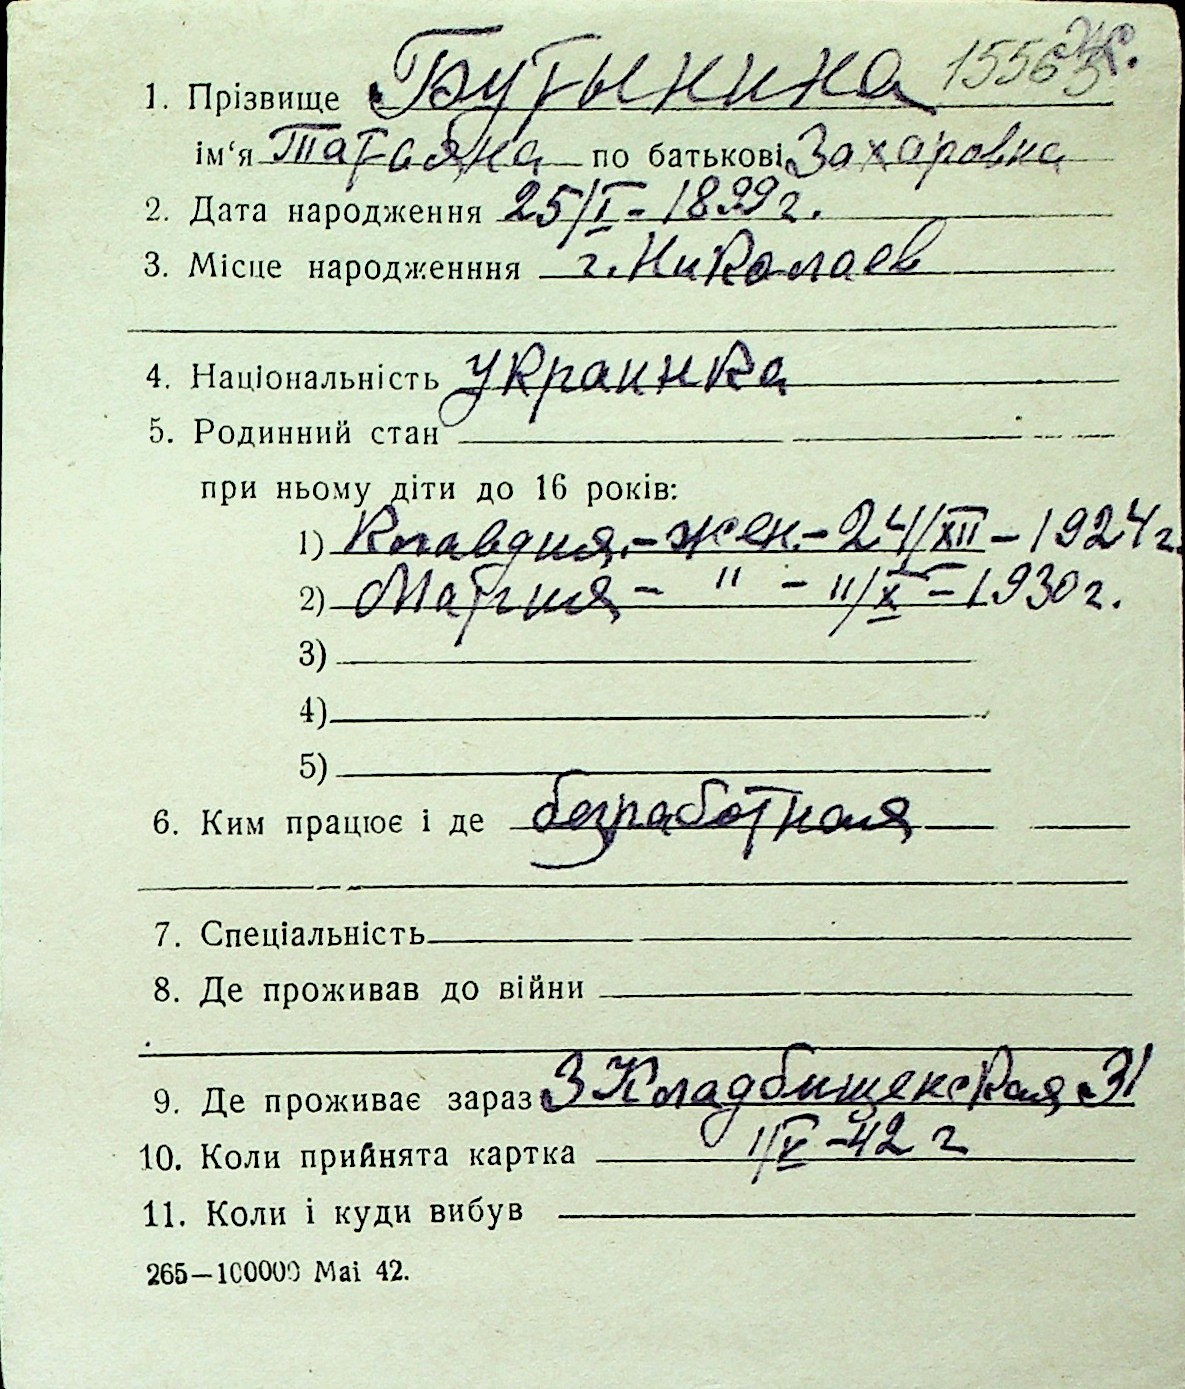 1. Прізвище Бутынина 15565
ім‘я Татьяна по батькові Захаровна
2. Дата народження 25/I - 1899 г.
3. Місце народженння г. Николаев
4. Національність украинка
5. Родинний стан
при ньому діти до 16 років:
1) Клавдия - жен. - 24/XII - 1924 г.
2) Мария - " - 11/X - 1930 г.
3)
4)
5)
6. Ким працює і де безработная
7. Спеціальність
8. Де проживав до війни
9. Де проживає зараз 3 Кладбищенская 31
10. Коли прийнята картка 1/V - 42 г
11. Коли і куди вибув
265—100000 Mai 42.